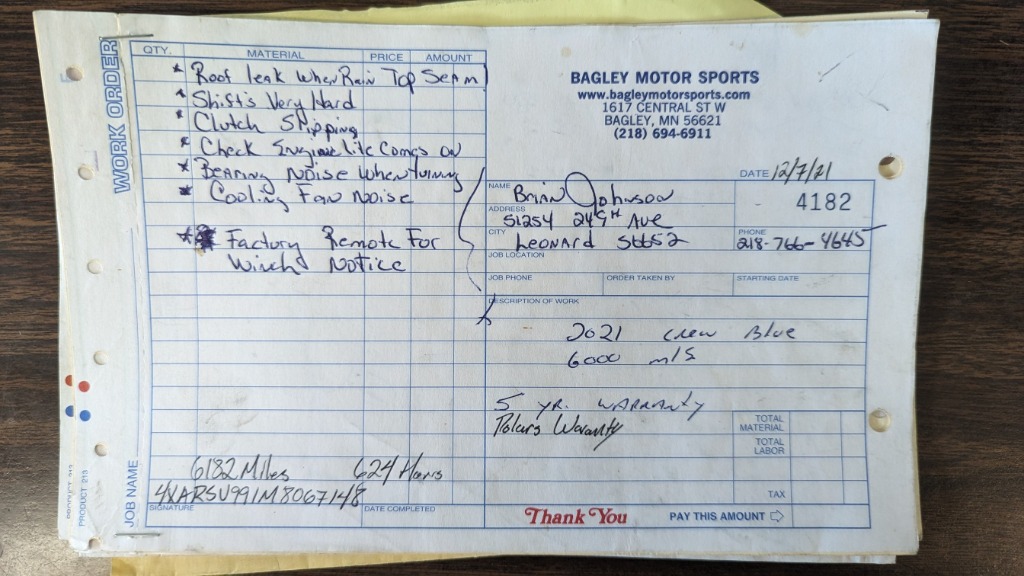 WORK ORDER
QTY. MATERIAL PRICE AMOUNT
* Roof leak When Rain Top Seam
* Shifts Very Hard
* Clutch Slipping
* Check Engine lite Comes on
* Bearing Noise When turning
* Cooling Fan Noise
* Factory Remote For
Winch Notice
6182 Miles 624 Hours
SIGNATURE
DATE COMPLETED
JOB NAME
PRODUCT 213
BAGLEY MOTOR SPORTS
www.bagleymotorsports.com
1617 CENTRAL ST W
BAGLEY, MN 56621
(218) 694-6911
DATE 12/7/21
4182
NAME Brian Johnson
ADDRESS 51254 249th Ave
CITY Leonard 56652
PHONE 218-766-4645
JOB LOCATION
JOB PHONE ORDER TAKEN BY STARTING DATE
DESCRIPTION OF WORK
2021 Crew Blue
6000 mls
5 YR. WARRANTY
Polars Waranty
TOTAL MATERIAL
TOTAL LABOR
TAX
Thank You
PAY THIS AMOUNT